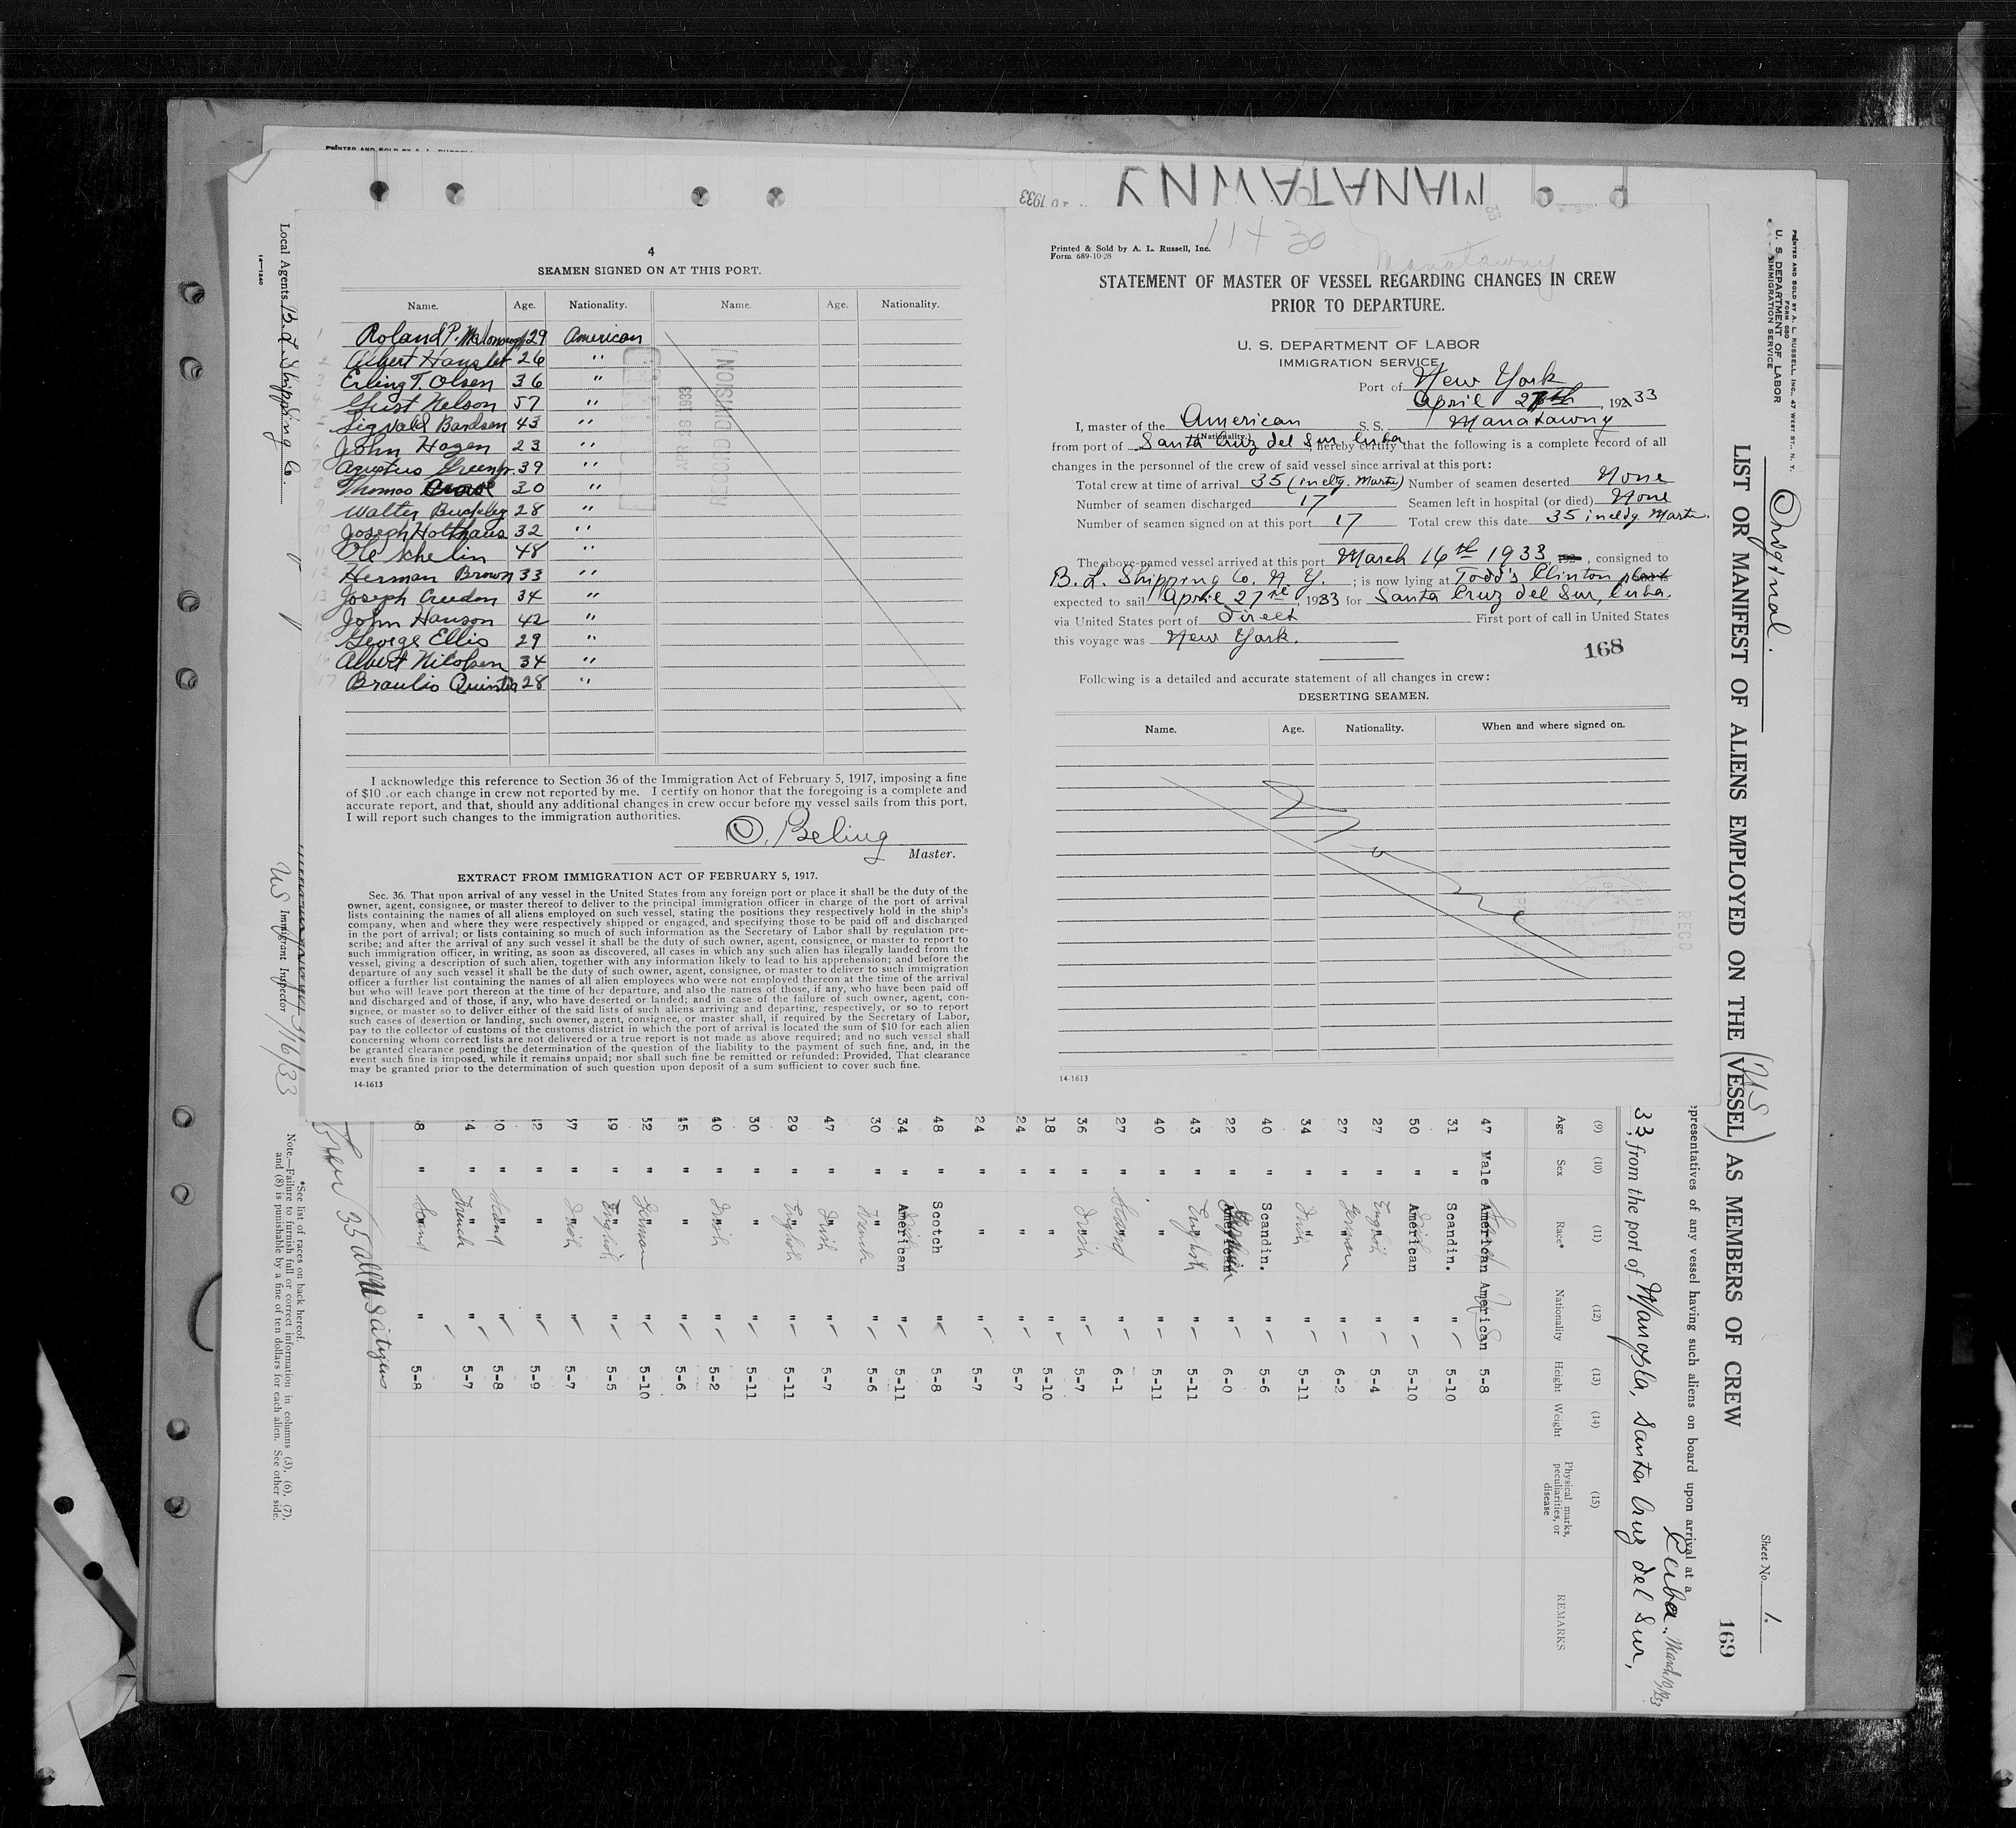 MANATAWNY
4
SEAMEN SIGNED ON AT THIS PORT.
Name. Age. Nationality. Name. Age. Nationality.
1 Roland P. 29 American
2 Albert 26 "
Erling T. Olsen 36 "
Nelson 57 "
Sigvald Bardsen 43 "
John Hagen 23 "
39 "
Thomas 30 "
Walter Buckley 28 "
Joseph Holthaus 32 "
Ole 48 "
Herman Brown 33 "
Joseph Creedon 34 "
John Hanson 42 "
George Ellis 29 "
Albert 34 "
17 Braulio 28 "
APR 28 1933
RECORD DIVISION
I acknowledge this reference to Section 36 of the Immigration Act of February 5, 1917, imposing a fine
of $10 .or each change in crew not reported by me. I certify on honor that the foregoing is a complete and
accurate report, and that, should any additional changes in crew occur before my vessel sails from this port,
I will report such changes to the immigration authorities.
O. Beling
Master.
EXTRACT FROM IMMIGRATION ACT OF FEBRUARY 5, 1917.
Sec. 36. That upon arrival of any vessel in the United States from any foreign port or place it shall be the duty of the
owner, agent, consignee, or master thereof to deliver to the principal immigration officer in charge of the port of arrival
lists containing the names of all aliens employed on such vessel, stating the positions they respectively hold in the ship's
company, when and where they were respectively shipped or engaged, and specifying those to be paid off and discharged
in the port of arrival; or lists containing so much of such information as the Secretary of Labor shall by regulation pre-
scribe; and after the arrival of any such vessel it shall be the duty of such owner, agent, consignee, or master to report to
such immigration officer, in writing, as soon as discovered, all cases in which any such alien has illegally landed from the
vessel, giving a description of such alien, together with any information likely to lead to his apprehension; and before the
departure of any such vessel it shall be the duty of such owner, agent, consignee, or master to deliver to such immigration
officer a further list containing the names of all alien employees who were not employed thereon at the time of the arrival
but who will leave port thereon at the time of her departure, and also the names of those, if any, who have been paid off
and discharged and of those, if any, who have deserted or landed; and in case of the failure of such owner, agent, con-
signee, or master so to deliver either of the said lists of such aliens arriving and departing, respectively, or so to report
such cases of desertion or landing, such owner, agent, consignee, or master shall, if required by the Secretary of Labor,
pay to the collector of customs of the customs district in which the port of arrival is located the sum of $10 for each alien
concerning whom correct lists are not delivered or a true report is not made as above required; and no such vessel shall
be granted clearance pending the determination of the question of the liability to the payment of such fine, and, in the
event such fine is imposed, while it remains unpaid; nor shall such fine be remitted or refunded: Provided, That clearance
may be granted prior to the determination of such question upon deposit of a sum sufficient to cover such fine.
14-1613
Printed & Sold by A. L. Russell, Inc.
Form 689-10-28
Manatawny
STATEMENT OF MASTER OF VESSEL REGARDING CHANGES IN CREW
PRIOR TO DEPARTURE.
U. S. DEPARTMENT OF LABOR
IMMIGRATION SERVICE
Port of New York
April 27th, 1933
I, master of the American S. S. Manatawny
(Nationality.)
from port of Santa Cruz del Sur, Cuba, hereby certify that the following is a complete record of all
changes in the personnel of the crew of said vessel since arrival at this port:
Total crew at time of arrival 35 (incldg. Mastr) Number of seamen deserted None
Number of seamen discharged 17 Seamen left in hospital (or died) None
Number of seamen signed on at this port 17 Total crew this date 35 incldg Mastr.
The above-named vessel arrived at this port March 16th 1933, consigned to
B. L. Shipping Co. N. Y.; is now lying at Todd's Clinton
expected to sail April 27th, 1933 for Santa Cruz del Sur, Cuba.
via United States port of Direct First port of call in United States
this voyage was New York.
168
Following is a detailed and accurate statement of all changes in crew:
DESERTING SEAMEN.
Name. Age. Nationality. When and where signed on.
None
14-1613
PRINTED AND SOLD BY A. L. RUSSELL, INC., 47 WEST ST., N. Y.
FORM 680
U. S. DEPARTMENT OF LABOR
IMMIGRATION SERVICE
Original.
Sheet No. 1.
LIST OR MANIFEST OF ALIENS EMPLOYED ON THE (VESSEL) AS MEMBERS OF CREW
US
169
epresentatives of any vessel having such aliens on board upon arrival at a
33, from the port of Manopla, Santa Cruz del Sur,
Cuba.
(9) (10) (11) (12) (13) (14) (15)
Age Sex Race* Nationality Height Weight Physical marks, peculiarities, or disease REMARKS
47 Male American American 5-8
31 " Scandin. " 5-10
50 " American " 5-10
27 " English " 5-4
27 " German " 6-2
34 " Irish " 5-11
40 " Scandin. " 5-6
22 " " 6-0
43 " English " 5-11
40 " " " 5-11
27 " Scand " 6-1
36 " Irish " 5-7
18 " " " 5-10
24 " " " 5-7
24 " " " 5-7
48 " Scotch " 5-8
34 " American " 5-11
30 " French " 5-6
47 " Irish " 5-7
29 " English " 5-11
30 " " " 5-11
40 " Irish " 5-2
45 " " " 5-6
32 " German " 5-10
19 " English " 5-5
37 " Irish " 5-7
" " " 5-9
" Scand " 5-8
" French " 5-7
" Scand " 5-8
Crew 35 all US citizens
Local Agents B. L. Shipping Co.
14-1240
US Immigrant Inspector 3/16/33
*See list of races on back hereof.
Note.—Failure to furnish full or correct information in columns (3), (6), (7),
and (8) is punishable by a fine of ten dollars for each alien. See other side.